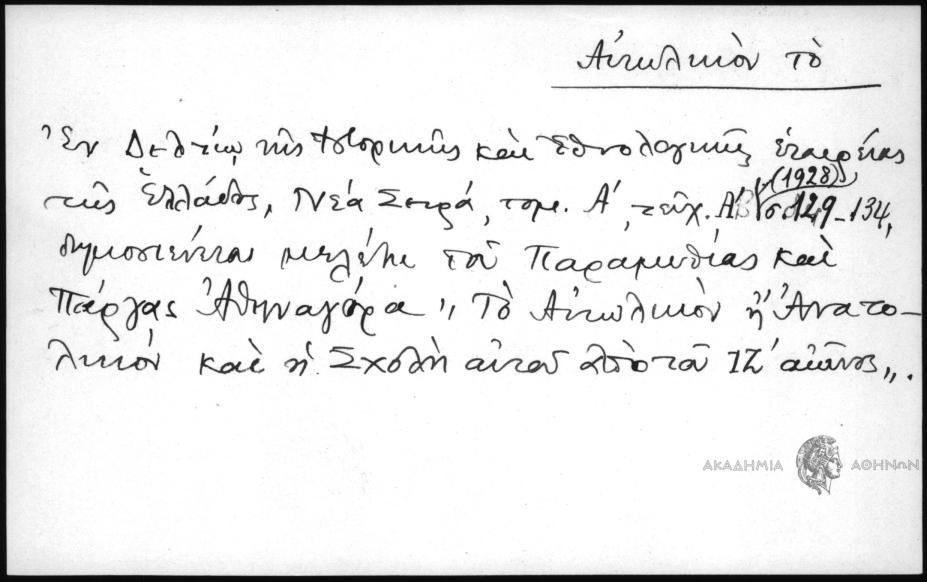 Αἰτωλικὸν τὸ
Ἐν Δελτίῳ τῆς Ἱστορικῆς καὶ Ἐθνολογικῆς ἑταιρείας
(1928)
τῆς Ἑλλάδος, Νέα Σειρά, τομ. Α΄, τεῦχ. Α΄ σ. 129-134,
δημοσιεύεται μελέτη τοῦ Παραμυθίας καὶ
Πάργας Ἀθηναγόρα „ Τὸ Αἰτωλικὸν ἢ Ἀνατο-
λικὸν καὶ ἡ Σχολὴ αὐτοῦ ἀπὸ τοῦ ΙΖ΄ αἰῶνος„.
ΑΚΑΔΗΜΙΑ ΑΘΗΝΩΝ